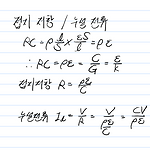 전기 저항 / 누설 전류
RC = ρ l/S × εS/l = ρε
∴ RC = ρε = C/G = ε/k
전기저항 R = ρε/C
누설전류 I_L = V/R = V/(ρε/C) = CV/ρε